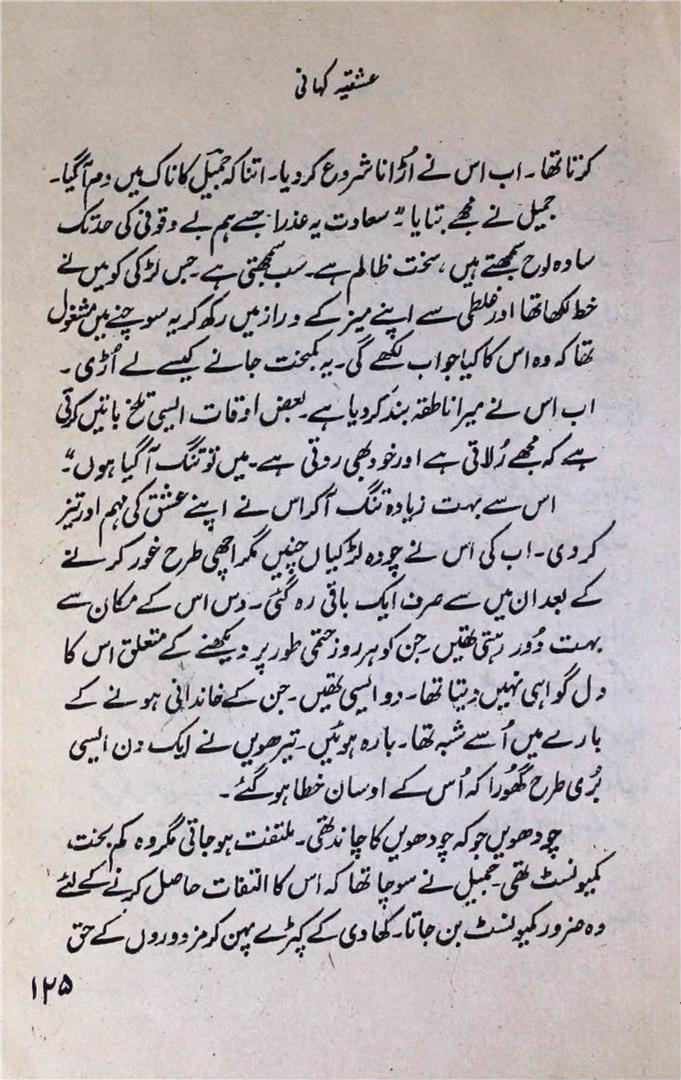 عشقیہ کہانی
کرتا تھا۔ اب اس نے اڑانا شروع کر دیا۔ اتنا کہ جمیل کا ناک میں دم آ گیا۔
جمیل نے مجھے بتایا "سعادت یہ عذرا جسے ہم بے وقوفی کی حد تک
سادہ لوح سمجھتے ہیں، سخت ظالم ہے۔ سب سمجھتی ہے۔ جس لڑکی کو میں نے
خط لکھا تھا اور غلطی سے اپنے میز کے دراز میں رکھ کر یہ سوچنے میں مشغول
تھا کہ وہ اس کا کیا جواب لکھے گی۔ یہ کمبخت جانے کیسے لے اُڑی۔
اب اس نے میرا ناطقہ بند کر دیا ہے۔ بعض اوقات ایسی تلخ باتیں کرتی
ہے کہ مجھے رُلاتی ہے اور خود بھی روتی ہے۔ میں تو تنگ آ گیا ہوں"۔
اس سے بہت زیادہ تنگ آ کر اس نے اپنے عشق کی مہم اور تیز
کر دی۔ اب کی اس نے چودہ لڑکیاں چنیں مگر اچھی طرح غور کرنے
کے بعد ان میں سے صرف ایک باقی رہ گئی۔ دس اس کے مکان سے
بہت دُور رہتی تھیں۔ جن کو ہر روز حتمی طور پر دیکھنے کے متعلق اس کا
دل گواہی نہیں دیتا تھا۔ دو ایسی تھیں۔ جن کے خاندانی ہونے کے
بارے میں اُسے شبہ تھا۔ بارہ ہوئیں۔ تیرھویں نے ایک دن ایسی
بُری طرح گھُورا کہ اُس کے اوسان خطا ہو گئے۔
چودھویں جو کہ چودھویں کا چاند تھی۔ ملتفت ہو جاتی مگر وہ کم بخت
کمیونسٹ تھی۔ جمیل نے سوچا تھا کہ اس کا التفات حاصل کرنے کے لئے
وہ ضرور کمیونسٹ بن جاتا۔ کھادی کے کپڑے پہن کر مزدوروں کے حق
۱۲۵